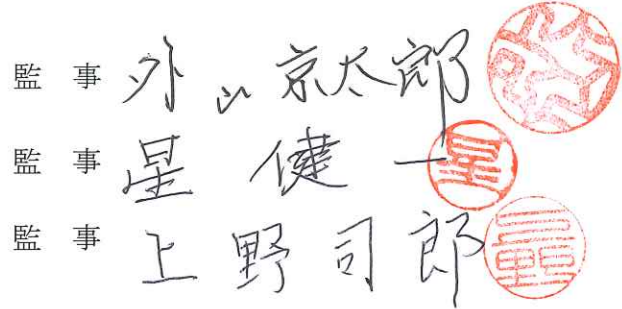 監事 外山京太郎
監事 星健一 星
監事 上野司郎